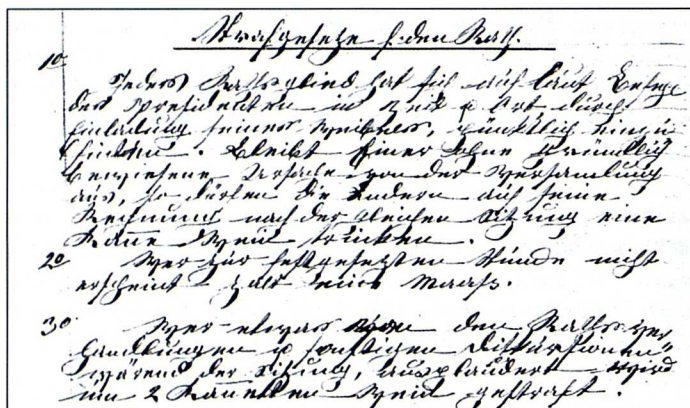 Strafgesetze f. den Rath.
1o Jedes Rathsglied hat sich auf laut Befehl
des Presidenten in Zeit u Ort durch
Einladung seines Weibels, pünktlich einzu
finden. Bleibt Einer ohne gründlich
bewiesene Ursache von der Versamlung
aus, so dürfen die Andern auf seine
Rechnung nach der gleichen Sitzung eine
Kanne Wein trinken.
2o Wer zur festgesetzten Stunde nicht
erscheint zalt eine Maass.
3o Wer etwas von den Rathsver
handlungen u sonstigen Diskursionen
wärend der Sitzung, ausplaudert wird
um 2 Kannen Wein gestraft.